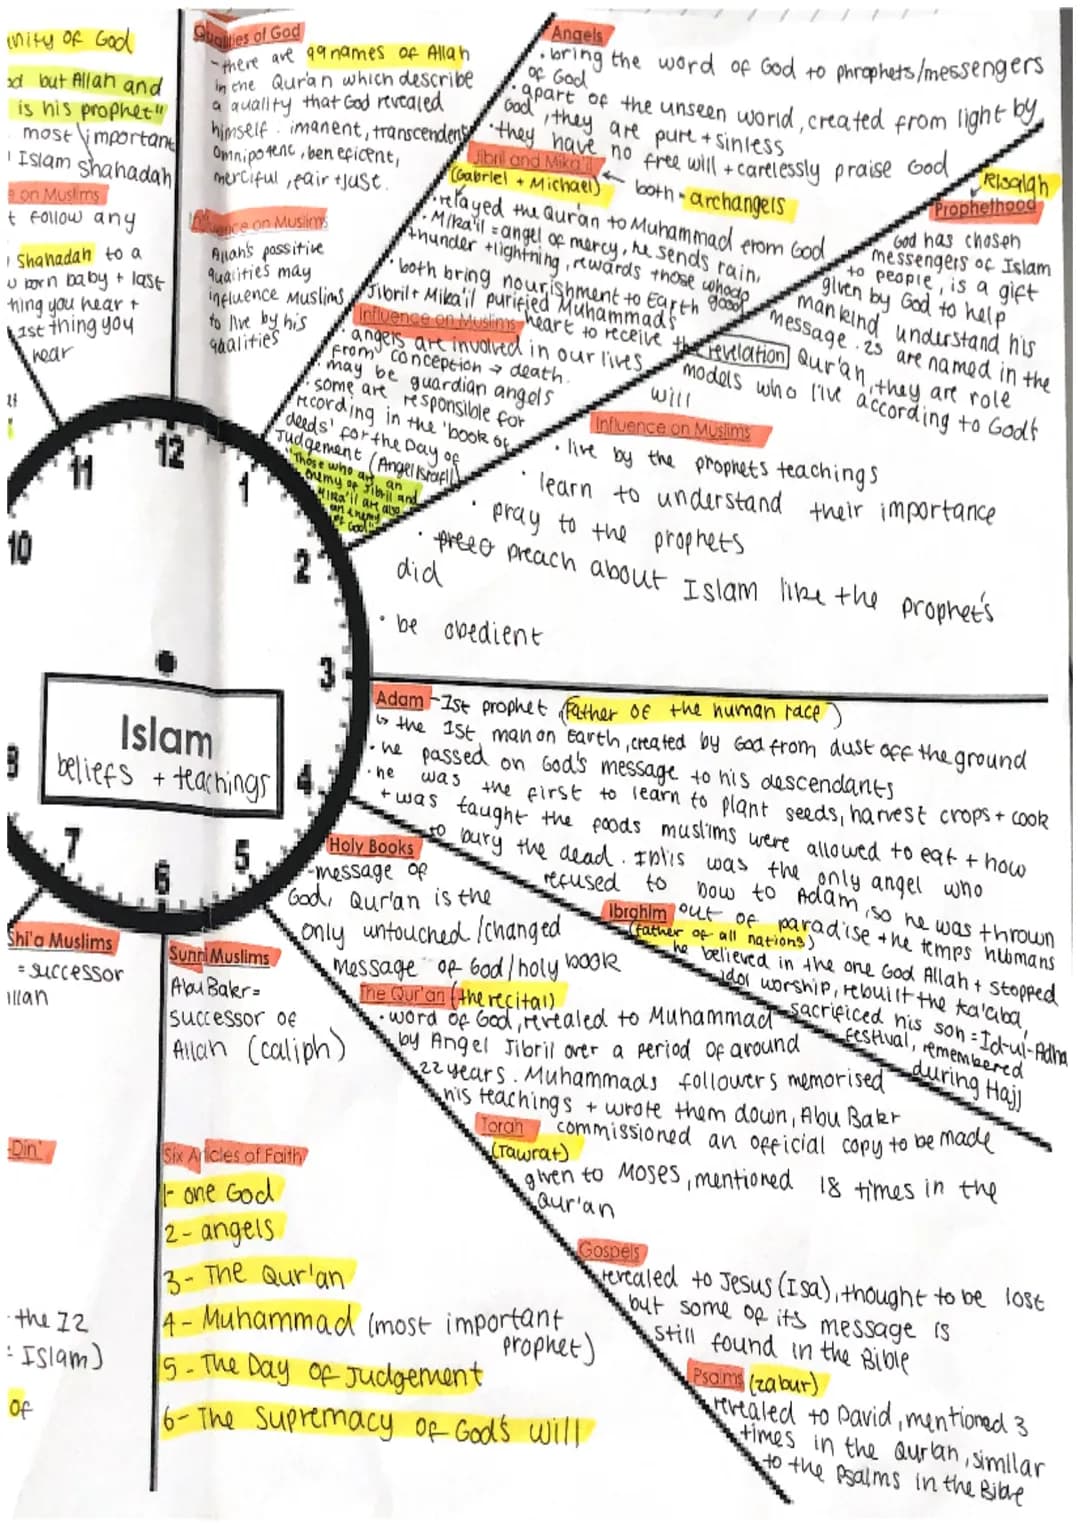 unity of God
od but Allah and
is his prophet"
most important
Islam Shahadah
e on Muslims
t follow any
Shahadah to a
w born baby + last
thing you hear +
1st thing you
hear
Qualities of God
-there are 99 names of Allah
in the Qur'an which describe
a quality that God revealed
himself. imanent, transcendent,
omnipotent, beneficent,
merciful, fair + just.
Influence on Muslims
Allah's possitive
qualities may
influence Muslims
to live by his
qualities
Angels
· bring the word of God to phrophets/messengers
of God
· apart of the unseen world, created from light by
God, they are pure + sinless
· they have no free will + carelessly praise God
Jibril and Mika'il
(Gabriel + Michael)
both = archangels
· relayed the Qur'an to Muhammad from God
· Mika'il = angel of mercy, he sends rain,
thunder + lightning, rewards those who do
good
· both bring nourishment to Earth
· Jibril + Mika'il purified Muhammad's
heart to receive the revelation
Influence on Muslims
· angels are involved in our lives
from conception → death.
may be guardian angels
· some are responsible for
rcording in the 'book of
deeds' for the Day of
Judgement (Angel Israfil)
"Those who are an
enemy of Jibril and
Mika'il are also
an enemy
of God"
Risalah
Prophethood
God has chosen
messengers of Islam
to people, is a gift
given by God to help
mankind understand his
message. 25 are named in the
Qur'an, they are role
models who live according to God's
will
Influence on Muslims
· live by the prophets teachings
· learn to understand their importance
· pray to the prophets
· preach about Islam like the prophet's
did
· be obedient
11
12
1
10
2
3
4
5
6
7
Islam
beliefs + teachings
Adam - 1st prophet (Father of the human race)
↳ the 1st man on Earth, created by God from dust off the ground
· he passed on God's message to his descendants
· he was the first to learn to plant seeds, harvest crops + cook
+ was taught the foods muslims were allowed to eat + how
to bury the dead. Iblis was the only angel who
refused to bow to Adam, so he was thrown
out of paradise + he temps humans
Ibrahim
(father of all nations)
he believed in the one God Allah + stopped
idol worship, rebuilt the ka'aba,
sacrificed his son = Id-ul-Adha
festival, remembered
during Hajj
Holy Books
-message of
God, Qur'an is the
only untouched/changed
message of God/holy book
The Qur'an (the recital)
· word of God, revealed to Muhammad
by Angel Jibril over a period of around
22 years. Muhammads followers memorised
his teachings + wrote them down, Abu Bakr
commissioned an official copy to be made
Torah
(Tawrat)
given to Moses, mentioned 18 times in the
Qur'an
Gospels
revealed to Jesus (Isa), thought to be lost
but some of its message is
still found in the Bible
Psalms (zabur)
revealed to David, mentioned 3
times in the Qur'an, similar
to the Psalms in the Bible
Shi'a Muslims
= successor
Sunni Muslims
Abu Bakr =
successor of
Allah (caliph)
-Din'
the 12
= Islam)
of
Six Articles of Faith
1- one God
2- angels
3- The Qur'an
4- Muhammad (most important
prophet)
5- The Day of Judgement
6- The Supremacy of God's will